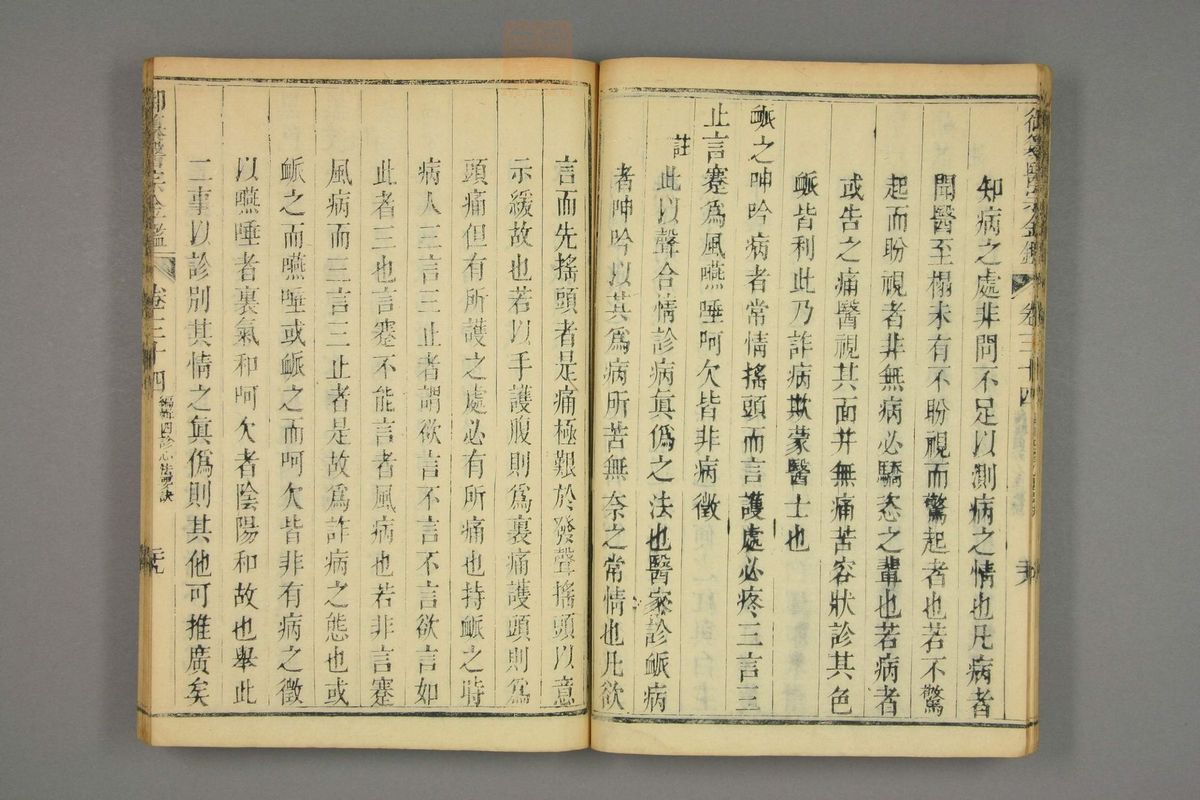 知病之處非問不足以測病之情也凡病者
聞醫至榻未有不盼視而驚起者也若不驚
起而盼視者非無病必驕恣之輩也若病者
或告之痛醫視其面并無痛苦容狀診其色
脈皆利此乃詐病欺蒙醫士也
脈之呻吟病者常情搖頭而言護處必疼三言三
止言蹇為風嚥唾呵欠皆非病徵
註 此以聲合情診病眞偽之法也醫家診脈病
者呻吟以其為病所苦無奈之常情也凡欲
言而先搖頭者是痛極艱於發聲搖頭以意
示緩故也若以手護腹則為裏痛護頭則為
頭痛但有所護之處必有所痛也持脈之時
病人三言三止者謂欲言不言不言欲言如
此者三也言蹇不能言者風病也若非言蹇
風病而三言三止者是故為詐病之態也或
脈之而嚥唾或脈之而呵欠皆非有病之徵
以嚥唾者裏氣和呵欠者陰陽和故也舉此
二事以診別其情之眞偽則其他可推廣矣
御纂醫宗金鑑 卷三十四 編輯四診心法要訣